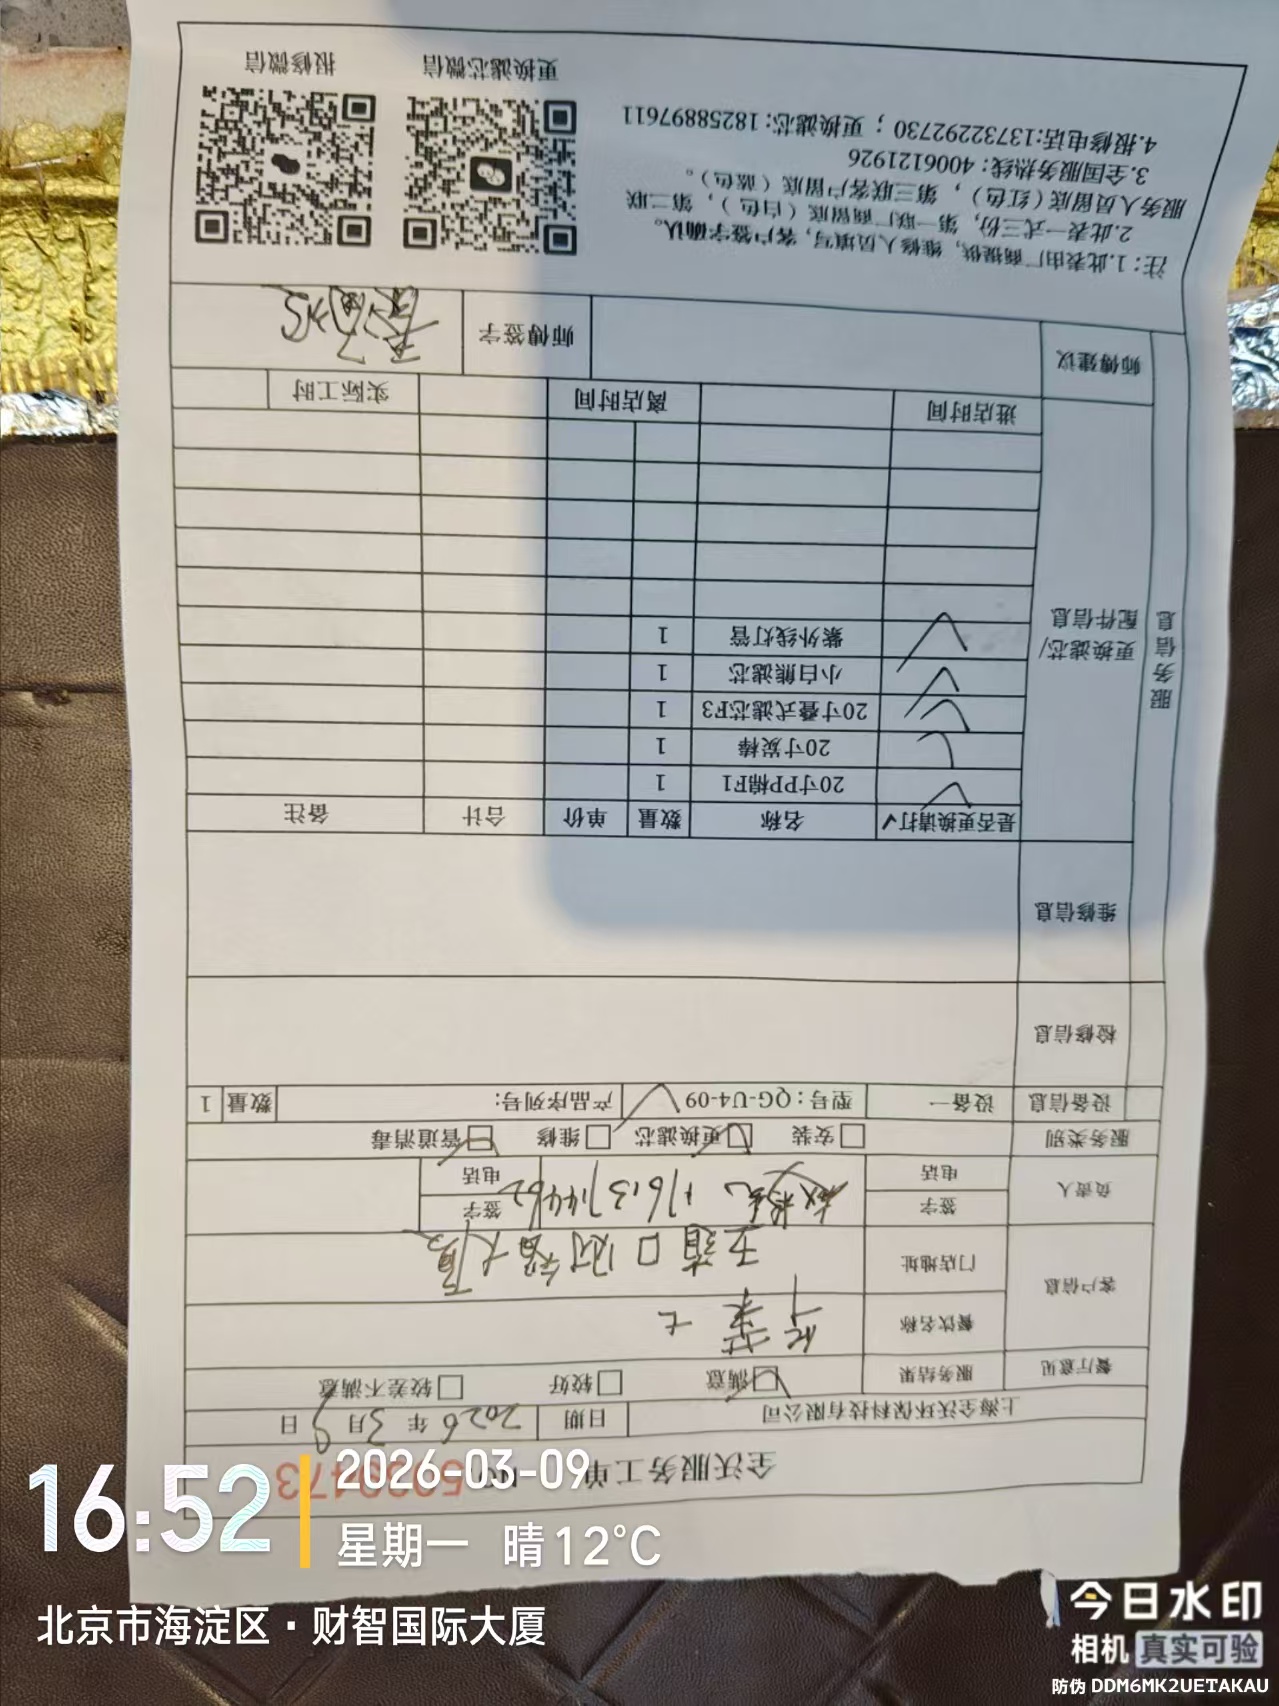 全沃服务工单
上海全沃环保科技有限公司 日期 2026年3月9日
餐厅意见 服务结果 满意 较好 较差不满意
客户信息 餐饮名称
门店地址 五道口财智大厦
负责人 签字 签字
电话 电话
服务类别 安装 更换滤芯 维修 管道消毒
设备信息 设备一 型号:QG-U4-09 产品序列号: 数量 1
检修信息
维修信息
服务信息
更换滤芯/配件信息
是否更换请打✓ 名称 数量 单价 合计 备注
✓ 20寸PP棉F1 1
✓ 20寸炭棒 1
✓ 20寸叠式滤芯F3 1
✓ 小白熊滤芯 1
✓ 紫外线灯管 1
进店时间 离店时间 实际工时
师傅建议 师傅签字
注:1.此表由厂商提供,维修人员填写,客户签字确认。
2.此表一式三份,第一联厂商留底(白色),第二联
服务人员留底(红色),第三联客户留底(蓝色)。
3.全国服务热线:4006121921
4.报修电话:13732292730;更换滤芯:18258897611
更换滤芯微信 报修微信
16:52
2026-03-09
星期一 晴 12°C
北京市海淀区·财智国际大厦
今日水印
相机 真实可验
防伪 DDM6MK2UETAKAU